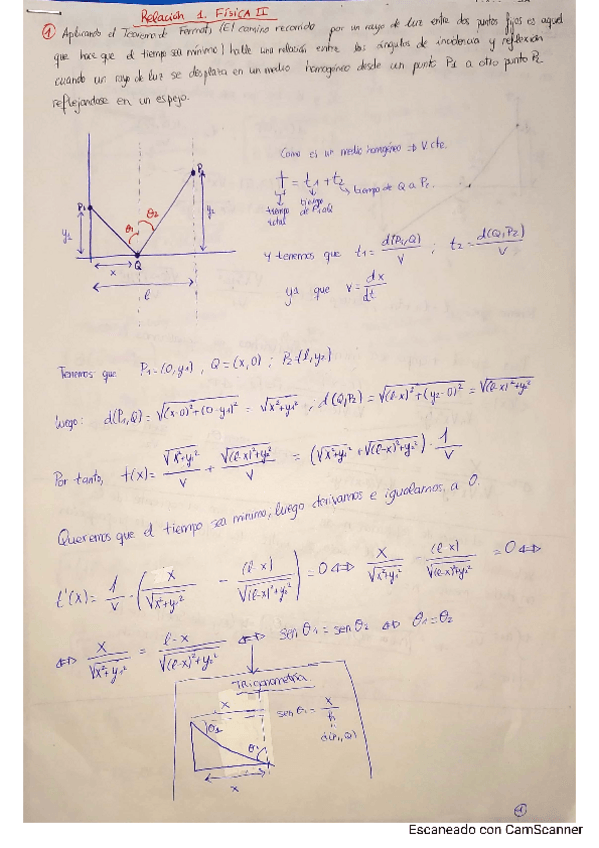 Relación 1. Física II
① Aplicando el Teorema de Fermat, (El camino recorrido por un rayo de luz entre dos puntos fijos es aquel
que hace que el tiempo sea mínimo) halle una relación entre los ángulos de incidencia y reflexión
cuando un rayo de luz se desplaza en un medio homogéneo desde un punto P1 a otro punto P2
reflejándose en un espejo.
Como es un medio homogéneo ⇒ V cte.
t = t1 + t2 → tiempo de Q a P2
tiempo total
tiempo de P1 a Q
Y tenemos que t1 = d(P1,Q)/V ; t2 = d(Q,P2)/V
ya que v = dx/dt
P1
P2
θ1
θ2
y1
y2
x
Q
l
Tenemos que P1 = (0,y1), Q = (x,0) ; P2 = (l,y2)
luego: d(P1,Q) = √((x-0)²+(0-y1)²) = √(x²+y1²) ; d(Q,P2) = √((l-x)²+(y2-0)²) = √((l-x)²+y2²)
Por tanto, t(x) = √(x²+y1²)/V + √((l-x)²+y2²)/V = (√(x²+y1²) + √((l-x)²+y2²)) · 1/V
Queremos que el tiempo sea mínimo, luego derivamos e igualamos a 0.
t'(x) = 1/V · (x/√(x²+y1²) - (l-x)/√((l-x)²+y2²)) = 0 ⇔ x/√(x²+y1²) - (l-x)/√((l-x)²+y2²) = 0 ⇔
⇔ x/√(x²+y1²) = l-x/√((l-x)²+y2²) ⇔ sen θ1 = sen θ2 ⇔ θ1 = θ2
Trigonometría
x
θ1
θ1
x
sen θ1 = x/h
d(P1,Q)
Escaneado con CamScanner